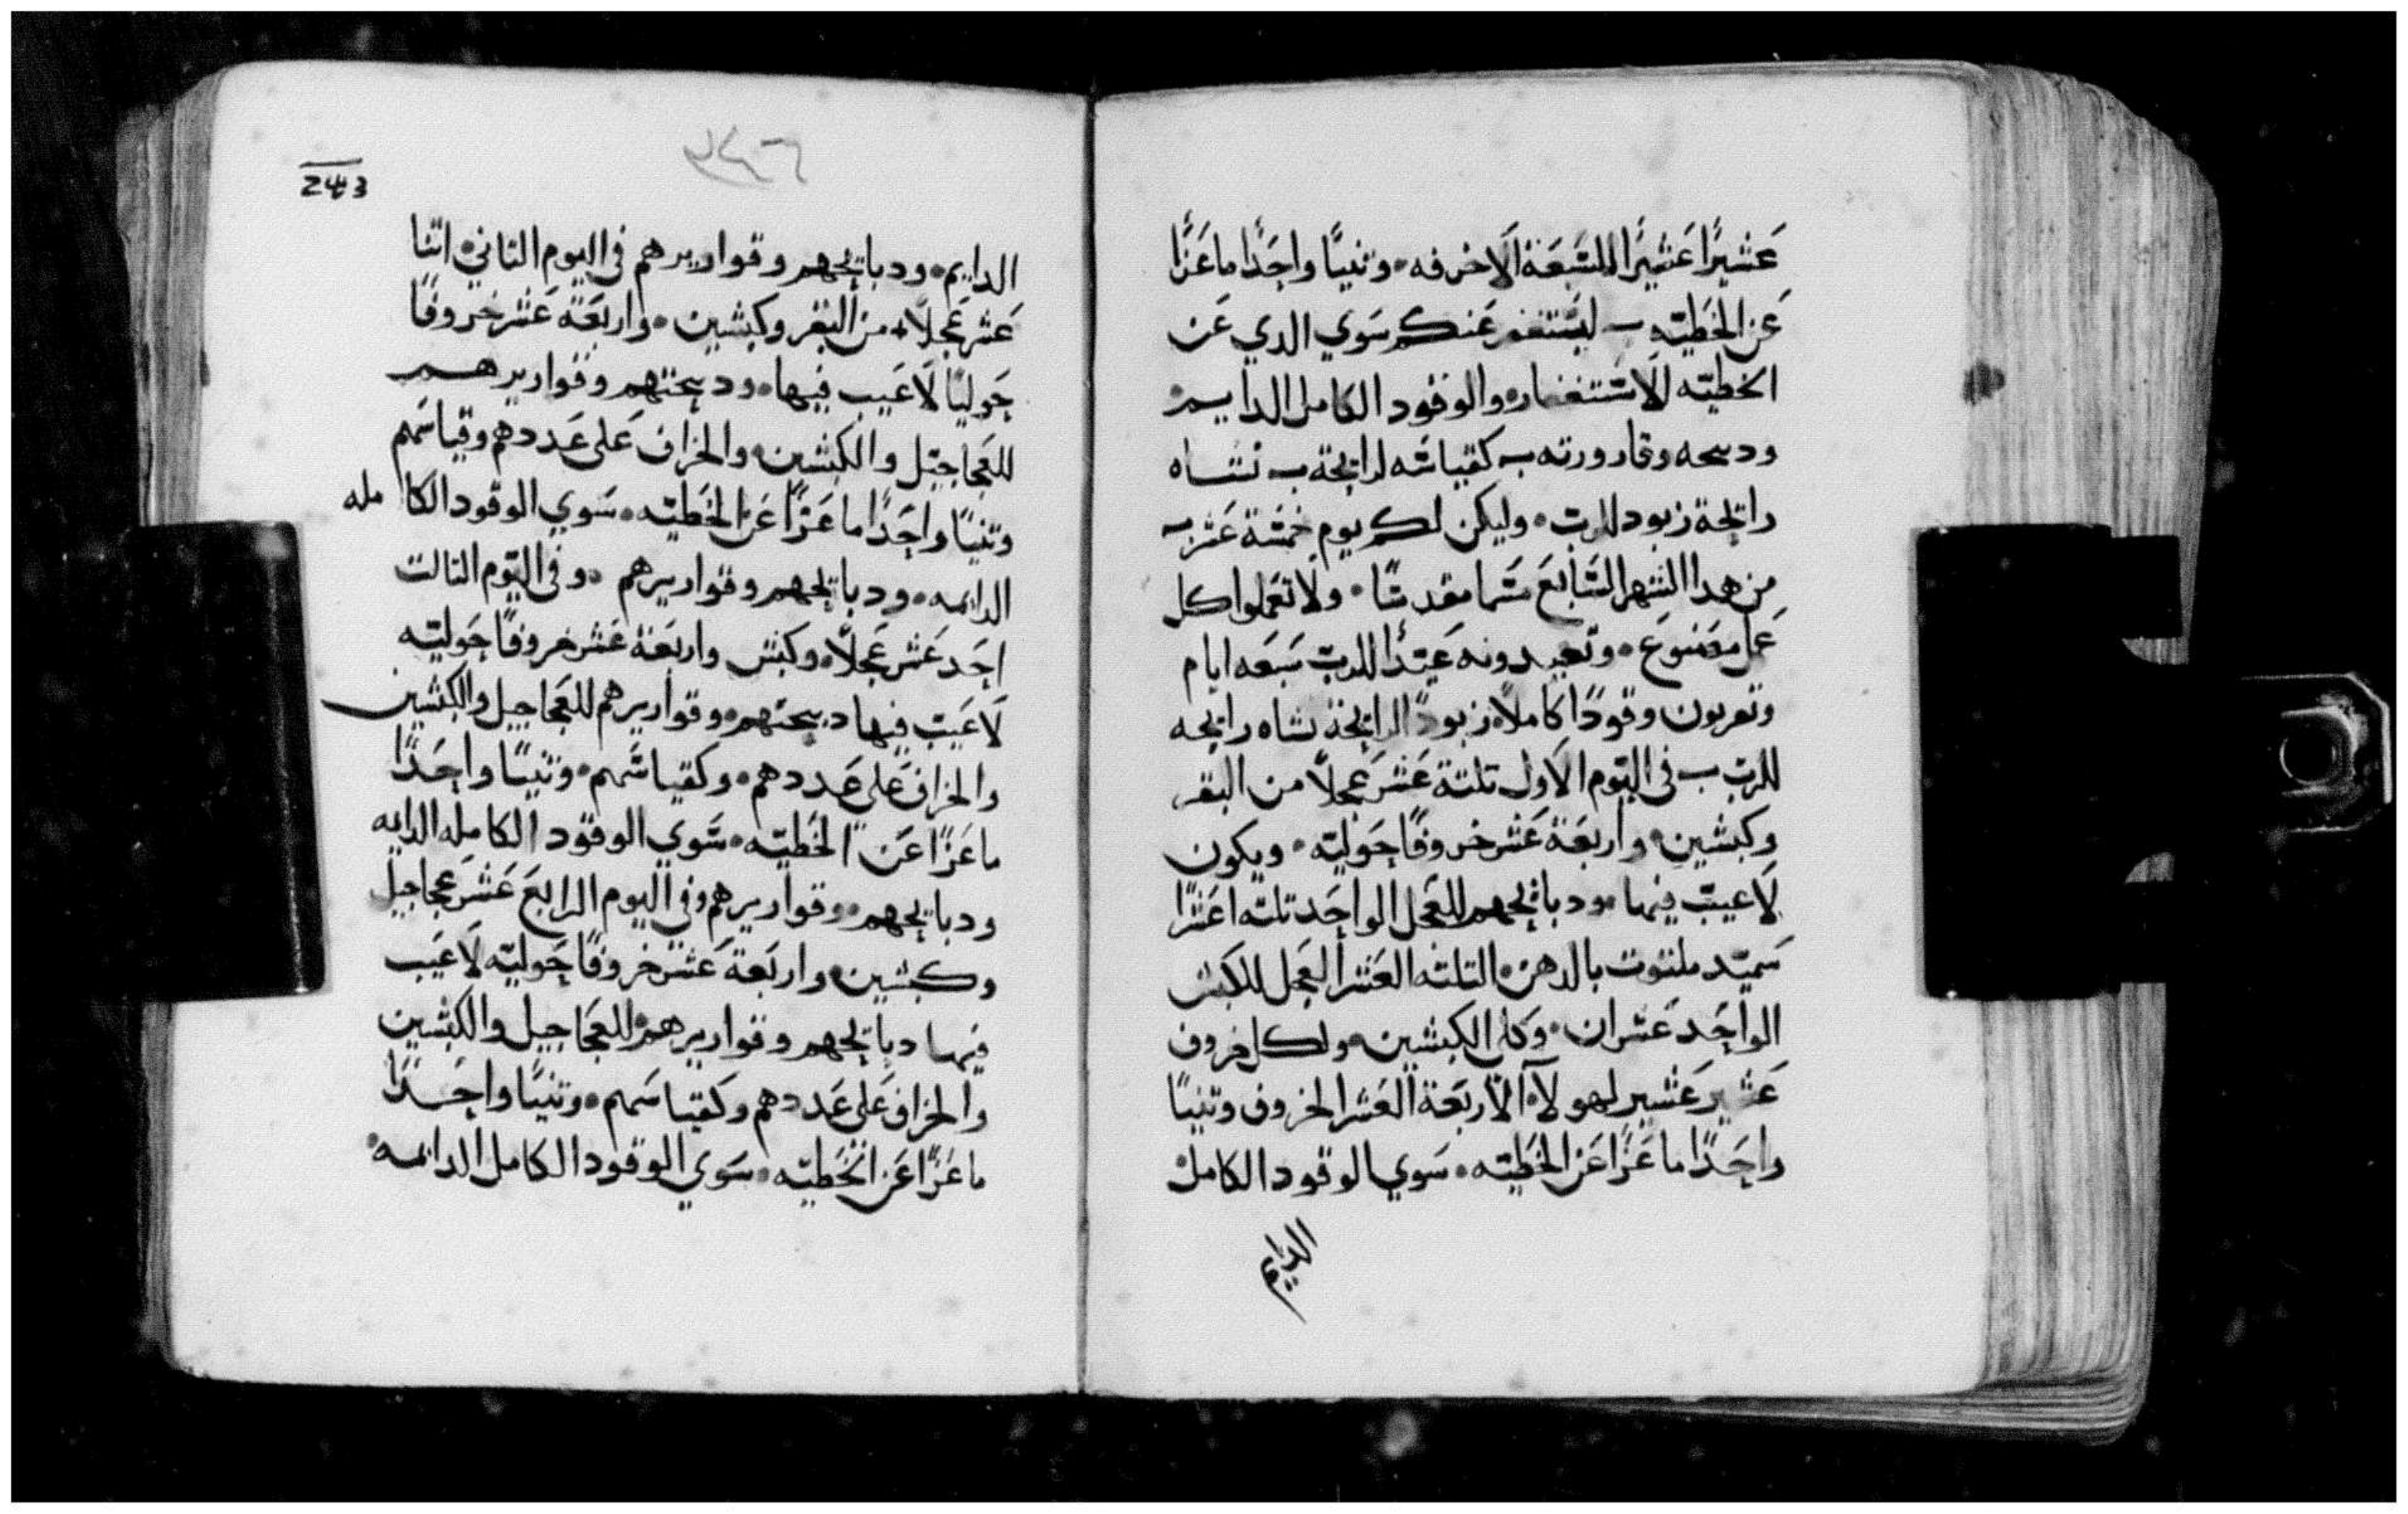 عَشيرًا عَشيرًا للسَّبعَة الاخرفه٠ وتنيًا واحِدًا ماعَزًا
عَن الخطيّه ليسَتغفر عَنكم سَوي الدي عَن
الخطيّه للاسَتغفاره والوقود الكامل الدايم
ودبيحه وقارورته كقياسَه لرايحة نشاه
رايحة زبود للرب٠ وليكن لكم يوم خمسَة عَشر
من هدا الشهر السَابع مسَما مقدسًا٠ ولا تعَملوا كل
عَمل مصَنوع٠ وتعيدونه عَيدًا للرب سَبعَه ايام
وتقربون وقودًا كاملاً٠ زبودًا لرايحة نشاه رايحه
للرب في اليَوم الاول تلتة عَشر عَجلاً من البقر
وكبشين٠ واربعَة عَشر خروفًا حَوليّه٠ ويكون
لاعيب فيها٠ ودبايحهم للعجل الواحَد تلته اعَشرًا
سَميّد ملتوت بالدهن٠ التلته العَشر العجل للكبش
الواحَد عَشران٠ وكل الكبشين٠ ولكل خروف
عَشير عَشير لهولاَء الاربَعة العَشر الخروف وتنيًا
واحَدًا ماعَزًا عَن الخطَيّه٠ سَوي الوقود الكامل
الدايم
٢٤٦
243
الدايم٠ ودبايحهم وقواريرهم في اليوم التاني٠ اتنا
عَشر عَجلاً٠ من البقر وكبشين٠ واربعَة عَشر خروفًا
حَوليًا لاعَيب فيها٠ ودبيحتهم وقواريرهم
للعَجاجيّل والكبشين٠ والخراف عَلى عَددهم وقياسَهم
وتنيًا واحَدًا ماعَزًا عَن الخَطيّه٠ سَوي الوقود الكا مله
الدايمه٠ ودبايحهم وقواريرهم ٠ وفي اليَوم التالت
احَد عَشر عَجلاً٠ وكبش واربعَة عَشر خروفًا حَوليّه
لاعَيب فيها دبيحتهم٠ وقواريرهم للعَجاجيل والكبشين
والخراف عَلى عَددهم٠ وكقياسَهم٠ وتنيًا واحَدًا
ماعَزًا عَن الخَطيّه٠ سَوي الوقود الكامله الدايمه
ودبايحهم٠ وقواريرهم وفي اليوم الرابعَ عَشر عَجاجيل
وكبشين٠ واربَعة عَشر خروفًا حَوليّه لاعَيب
فيها دبايحهم وقواريرهم٠ للعجَاجيل والكبشين
والخراف عَلى عَددهم وكقياسَهم٠ وتنيًا واحَدًا
ماعَزًا عَن الخَطيّه٠ سَوي الوقود الكامل الدايمه٠